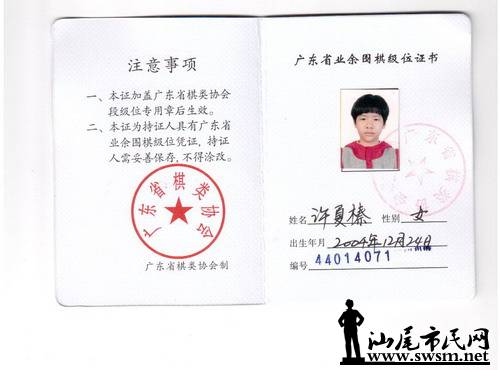 注意事项
一、本证加盖广东省棋类协会
段级位专用章后生效。
二、本证为持证人具有广东省
业余围棋级位凭证，持证
人需妥善保存，不得涂改。
广东省棋类协会
广东省棋类协会制
广东省业余围棋级位证书
姓名 许夏榛 性别 女
出生年月 2004年12月24日
编号 44014071
汕尾市民网
www.swsm.net